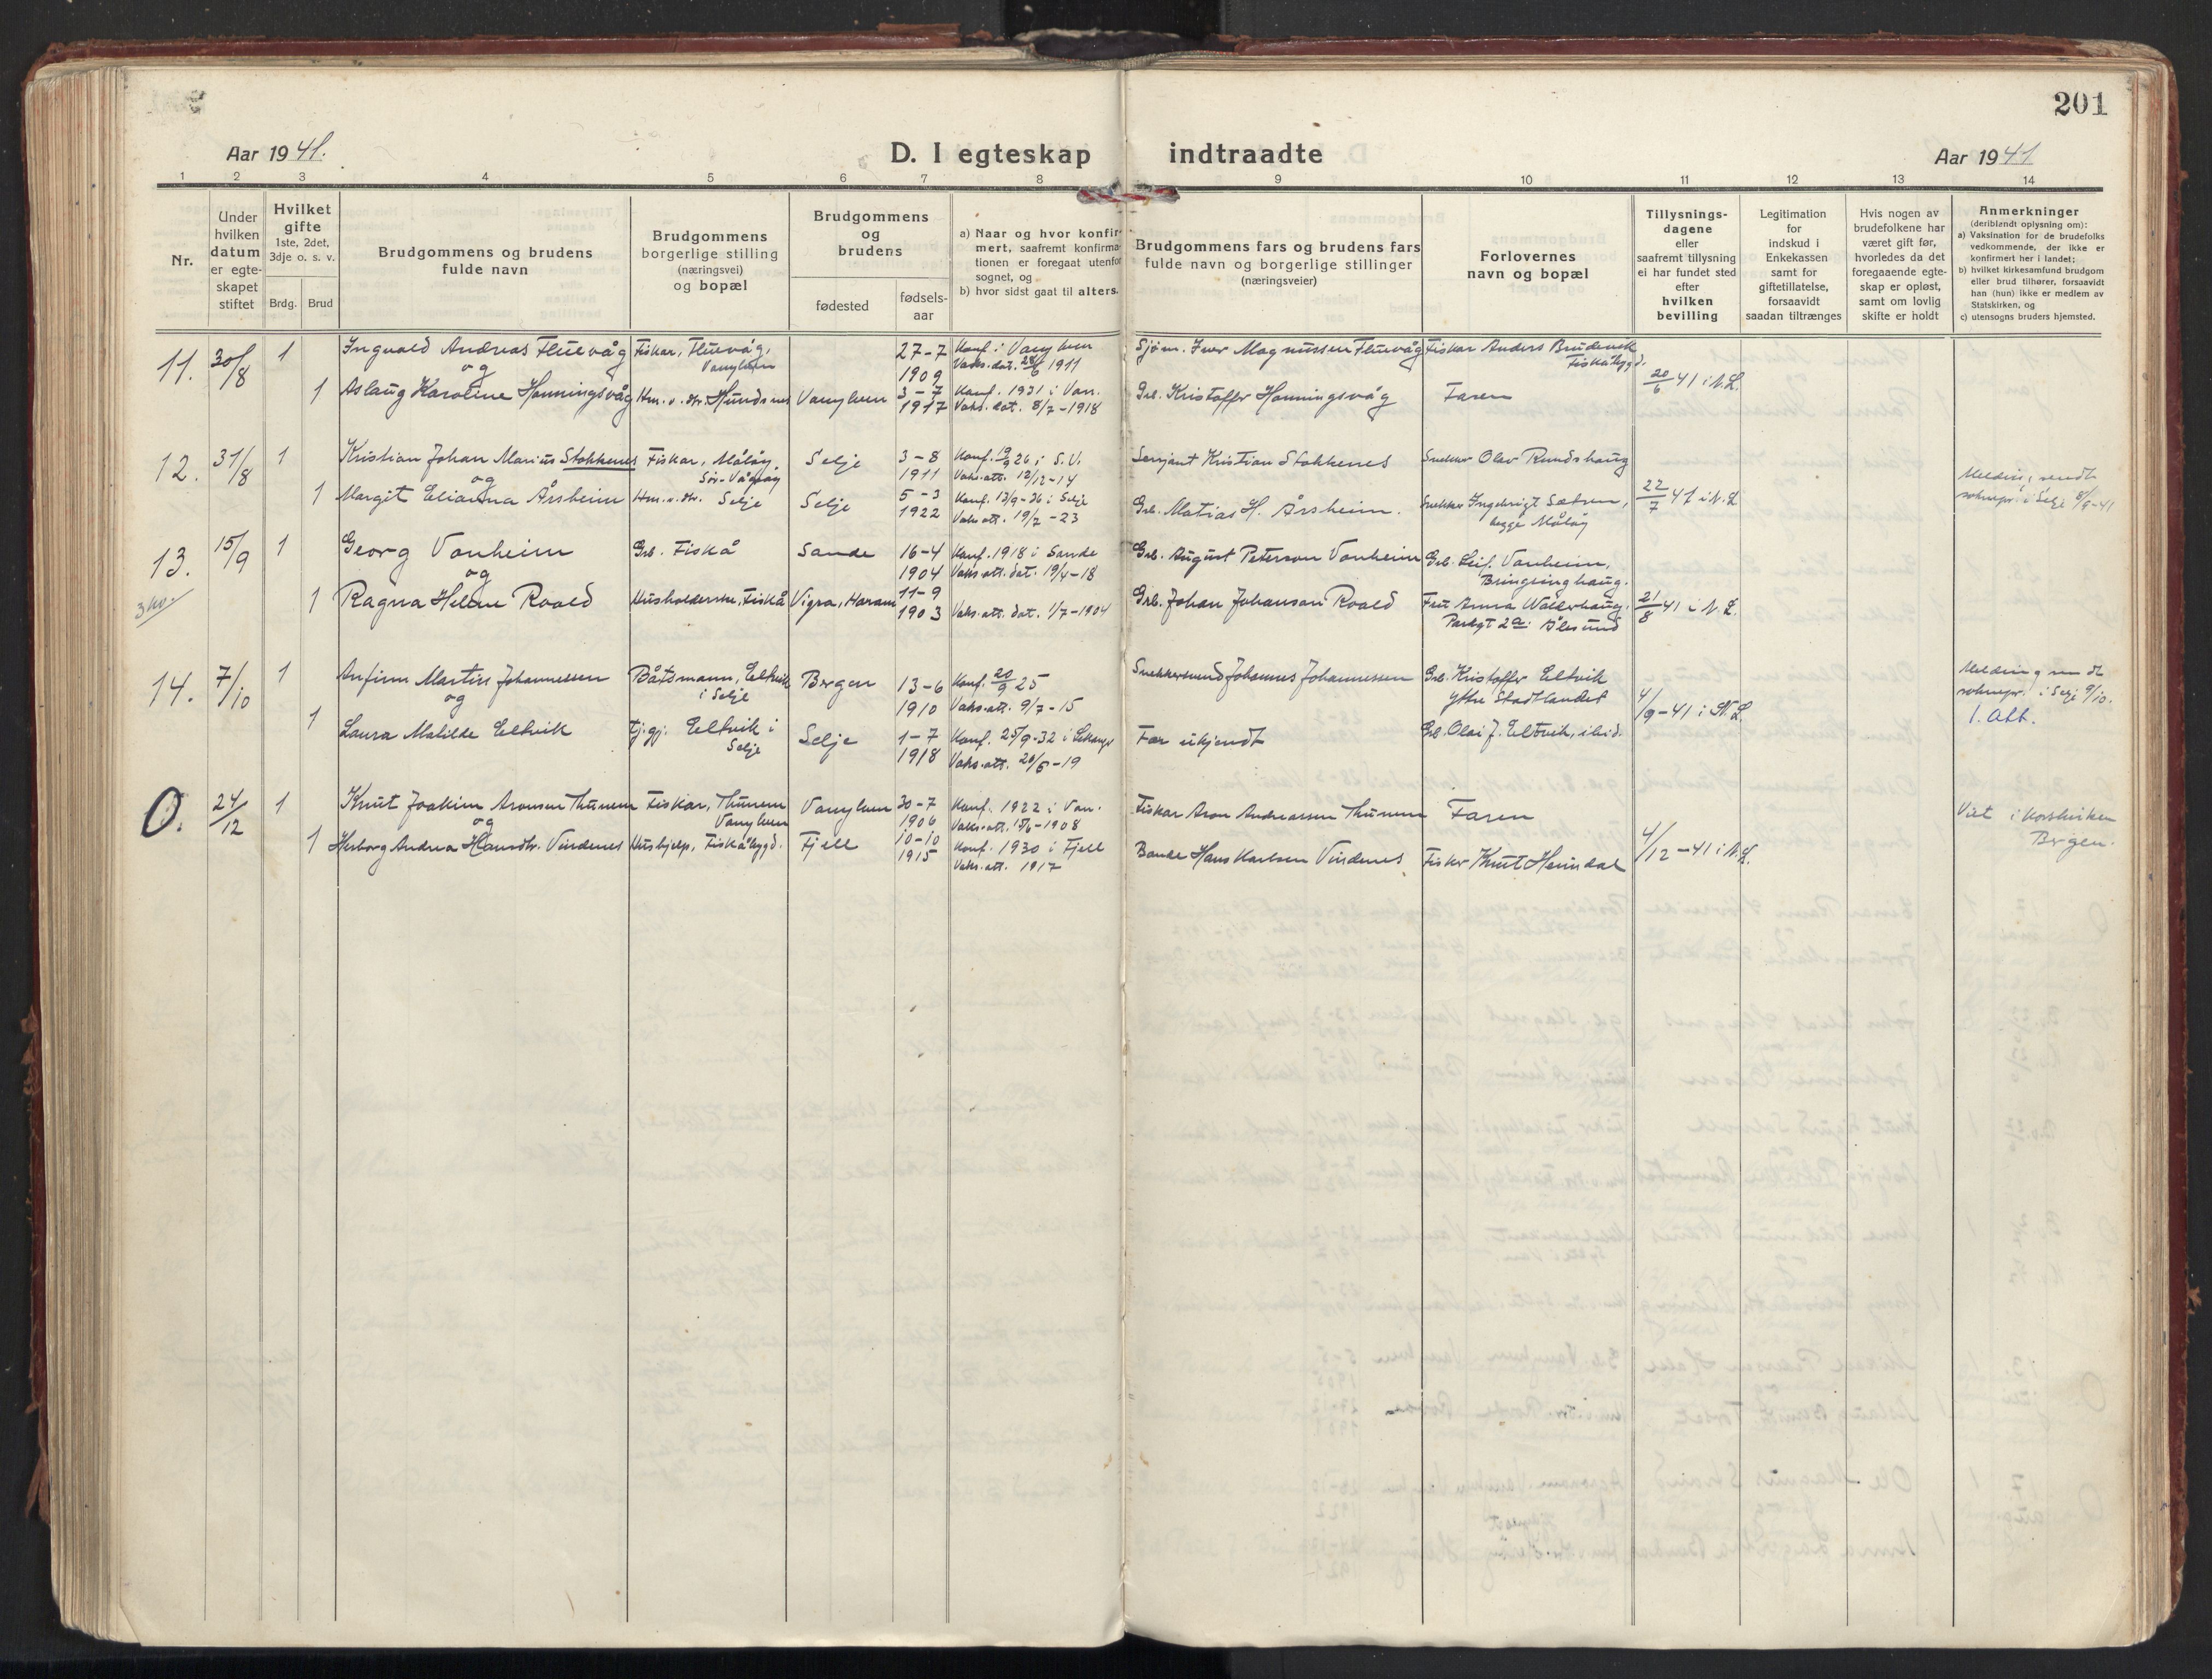 201
Aar 1941.
D. I egteskap indtraadte
Aar 1941
1 2 3 4 5 6 7 8 9 10 11 12 13 14
Nr.
Under hvilken datum er egte-skapet stiftet
Hvilket gifte
1ste, 2det, 3dje o. s. v.
Brdg. Brud
Brudgommens og brudens fulde navn
Brudgommens borgerlige stilling (næringsvei) og bopæl
Brudgommens og brudens
fødested
fødsels-aar
a) Naar og hvor konfir-mert, saafremt konfirma-tionen er foregaat utenfor sognet, og
b) hvor sidst gaat til alters.
Brudgommens fars og brudens fars fulde navn og borgerlige stillinger (næringsveier)
Forlovernes navn og bopæl
Tillysnings-dagene eller saafremt tillysning ei har fundet sted efter hvilken bevilling
Legitimation for indskud i Enkekassen samt for giftetillatelse, forsaavidt saadan tiltrænges
Hvis nogen av brudefolkene har været gift før, hvorledes da det foregaaende egte-skap er opløst, samt om lovlig skifte er holdt
Anmerkninger
(deriblandt oplysning om):
a) Vaksination for de brudefolks vedkommende, der ikke er konfirmert her i landet;
b) hvilket kirkesamfund brudgom eller brud tilhører, forsaavidt han (hun) ikke er medlem av Statskirken, og
c) utensogns bruders hjemsted.
11. 30/8 1 Ingvald Andreas Fluevåg Fiskar, Fluevåg, Vanylven 27-7 1909 Konf. i Vanylven Vaks. dat. 28/6 1911 Sjøm. Iver Magnussen Fluevåg Fiskar Anders Brudevik Fiskåbygd.
og
1 Aslaug Karoline Honningsvåg Hm. v. dtr. Hundsnes Vanylven 3-7 1917 Konf. 1931 i Van. Vaks. dat. 8/7-1918 Grb. Kristoffer Honningsvåg Faren 20/6 41 i N.L.
12. 31/8 1 Kristian Johan Marius Stokkenes Fiskar, Måløy, Sør-Vågsøy Selje 3-8 1911 Konf. 19/9 26 i S.V. Vaks. att. 12/12-14 Serjant Kristian Stokkenes Snekker Olav Rundshaug
og
1 Margit Elianna Årsheim Hm. v. dtr. Selje Selje 5-3 1922 Konf. 13/9-36 i Selje Vaks att. 19/7-23 Grb. Matias H. Årsheim. Snekker Ingebrigt Sætren, begge Måløy 22/7 41 i N.L. Melding sendt soknepr. i Selje 8/9-41
13. 15/9 1 Georg Vonheim Grb. Fiskå Sande 16-4 1904 Konf. 1918 i Sande Vaks att. dat. 19/4-18 Grb. August Peterson Vonheim Grb. Leif Vonheim, Bringsinghaug.
og
1 Ragna Helene Roald Husholderske, Fiskå Vigra, Haram 11-9 1903 Vaks. att. dat. 1/7-1904 Grb. Johan Johansan Roald Fru Anna Wollerhaug, Parkgt 2a Ålesund 21/8 41 i N.L.
14. 7/10 1 Anfinn Martin Johannessen Båtsmann, Eltvik i Selje Bergen 13-6 1910 Konf. 20/9 25 Vaks. att. 9/7-15 Snekkersvend Johannes Johannessen Grb. Kristoffer Eltvik ytre Stadtlandet
og
1 Laura Matilde Eltvik tj. gj. Eltvik i Selje Selje 1-7 1918 Konf. 25/9-32 i Leikanger Vaks. att. 26/6-19 Far ukjendt Grb. Olai J. Eltvik, ibid. 4/9-41 i N.L. Melding sendt soknepr. i Selje 9/10. 1. Att.
O. 24/12 1 Knut Joakim Aronsen Thunem Fiskar, Thunem Vanylven Vanylven 30-7 1906 Konf. 1922 i Van. Vaks. att. 15/6-1908 Fiskar Aron Andreassen Thunem Faren Viet i Korskirken Bergen.
og
1 Herborg Andrea Hansdtr. Vindenes Hushjelp, Fiskåbygd. Fjell 10-10 1915 Konf. 1930 i Fjell Vaks. att. 1917 Bonde Hans Karlsen Vindenes Fisker Knut Heimdal 4/12-41 i N.L.